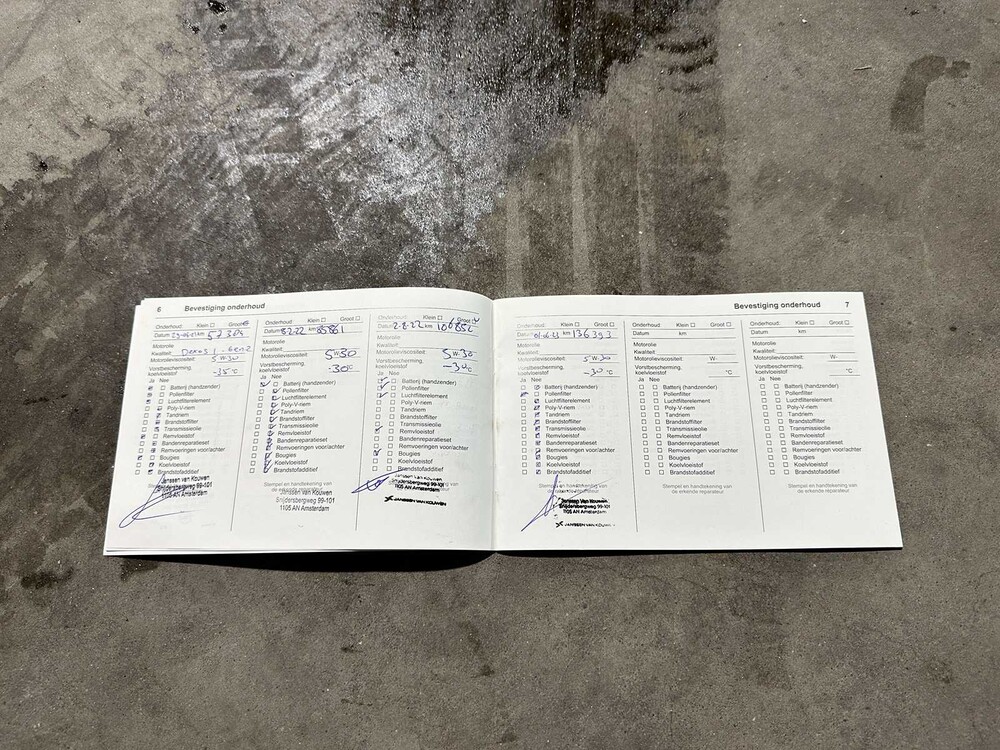 6 Bevestiging onderhoud
Onderhoud: Klein ☐ Groot
Datum km
Motorolie
Kwaliteit: Dexos 1 - Gen 2
Motorolieviscositeit: 5 W-30
Vorstbescherming,
koelvloeistof -35 °C
Ja Nee
Batterij (handzender)
Pollenfilter
Luchtfilterelement
Poly-V-riem
Tandriem
Brandstoffilter
Transmissieolie
Remvloeistof
Bandenreparatieset
Remvoeringen voor/achter
Bougies
Koelvloeistof
Brandstofadditief
Janssen van Kouwen
Snijdersbergweg 99-101
1105 AN Amsterdam
Onderhoud: Klein ☐ Groot ☐
Datum 8-2-22 km 85861
Motorolie
Kwaliteit:
Motorolieviscositeit: 5W30
Vorstbescherming,
koelvloeistof -30 °C
Ja Nee
Batterij (handzender)
Pollenfilter
Luchtfilterelement
Poly-V-riem
Tandriem
Brandstoffilter
Transmissieolie
Remvloeistof
Bandenreparatieset
Remvoeringen voor/achter
Bougies
Koelvloeistof
Brandstofadditief
Stempel en handtekening van
Janssen van Kouwen
Snijdersbergweg 99-101
1105 AN Amsterdam
Onderhoud: Klein ☐ Groot
Datum 2-8-22 km 106852
Motorolie
Kwaliteit:
Motorolieviscositeit: 5 W-30
Vorstbescherming,
koelvloeistof -30 °C
Ja Nee
Batterij (handzender)
Pollenfilter
Luchtfilterelement
Poly-V-riem
Tandriem
Brandstoffilter
Transmissieolie
Remvloeistof
Bandenreparatieset
Remvoeringen voor/achter
Bougies
Koelvloeistof
Brandstofadditief
Janssen van Kouwen
Snijdersbergweg 99-101
1105 AN Amsterdam
JANSSEN VAN KOUWEN
Bevestiging onderhoud 7
Onderhoud: Klein ☐ Groot ☐
Datum 01-06-23 km 136393
Motorolie
Kwaliteit:
Motorolieviscositeit: 5 W-30
Vorstbescherming,
koelvloeistof -30 °C
Ja Nee
Batterij (handzender)
Pollenfilter
Luchtfilterelement
Poly-V-riem
Tandriem
Brandstoffilter
Transmissieolie
Remvloeistof
Bandenreparatieset
Remvoeringen voor/achter
Bougies
Koelvloeistof
Brandstofadditief
Janssen Van Kouwen
Snijdersbergweg 99-101
1105 AN Amsterdam
JANSSEN VAN KOUWEN
Onderhoud: Klein ☐ Groot ☐
Datum km
Motorolie
Kwaliteit:
Motorolieviscositeit: W-
Vorstbescherming,
koelvloeistof °C
Ja Nee
Batterij (handzender)
Pollenfilter
Luchtfilterelement
Poly-V-riem
Tandriem
Brandstoffilter
Transmissieolie
Remvloeistof
Bandenreparatieset
Remvoeringen voor/achter
Bougies
Koelvloeistof
Brandstofadditief
Stempel en handtekening van
de erkende reparateur
Onderhoud: Klein ☐ Groot ☐
Datum km
Motorolie
Kwaliteit:
Motorolieviscositeit: W-
Vorstbescherming,
koelvloeistof °C
Ja Nee
Batterij (handzender)
Pollenfilter
Luchtfilterelement
Poly-V-riem
Tandriem
Brandstoffilter
Transmissieolie
Remvloeistof
Bandenreparatieset
Remvoeringen voor/achter
Bougies
Koelvloeistof
Brandstofadditief
Stempel en handtekening van
de erkende reparateur